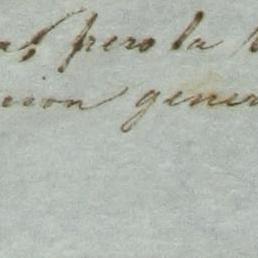 pero la
cion gener